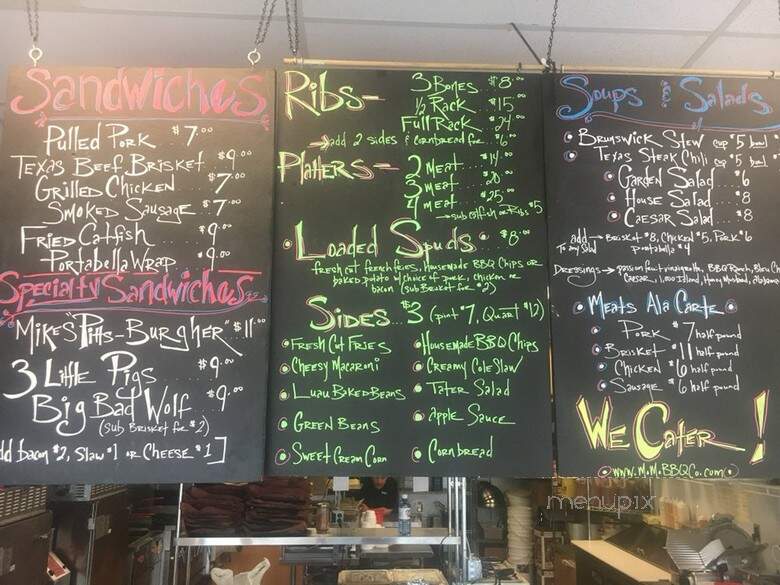 Sandwiches
Pulled Pork $7.00
Texas Beef Brisket $9.00
Grilled Chicken $7.00
Smoked Sausage $7.00
Fried Catfish $9.00
Portabella Wrap $9.00
Specialty Sandwiches
Mike's "Pitts-Burgher" $11.00
3 Little Pigs $9.00
Big Bad Wolf $9.00
(sub Brisket for $2)
dd bacon $2, Slaw $1 or Cheese $1]
Ribs-
3 Bones $8.00
1/2 Rack $15
Full Rack $24.00
add 2 sides & cornbread for $6.00
Platters-
2 meat $14.00
3 meat $20.00
4 meat $25.00
sub catfish or Ribs $5
Loaded Spuds $8.00
fresh cut french fries, Housemade BBQ Chips or
baked potato w/ choice of pork, chicken or
bacon (sub Brisket for $2)
Sides $3 (pint $7, Quart $12)
Fresh Cut Fries
Cheesy Macaroni
Luau Baked Beans
Green Beans
Sweet Cream Corn
Housemade BBQ Chips
Creamy Cole Slaw
Tater Salad
apple Sauce
Cornbread
Soups & Salads
Brunswick Stew cup $5 bowl
Texas Steak Chili cup $5 bowl
Garden Salad $6
House Salad $8
Caesar Salad $8
add To Any Salad Brisket $8, Chicken $5, Pork $6
Portabella $4
Dressings passion fruit vinaigrette, BBQ Ranch, Bleu Ch
Caesar, 1,000 Island, Honey Mustard,
Meats Ala Carte
Pork $7 half pound
Brisket $11 half pound
Chicken $6 half pound
Sausage $6 half pound
We Cater!
www.M.M.BBQCo.com
menupix